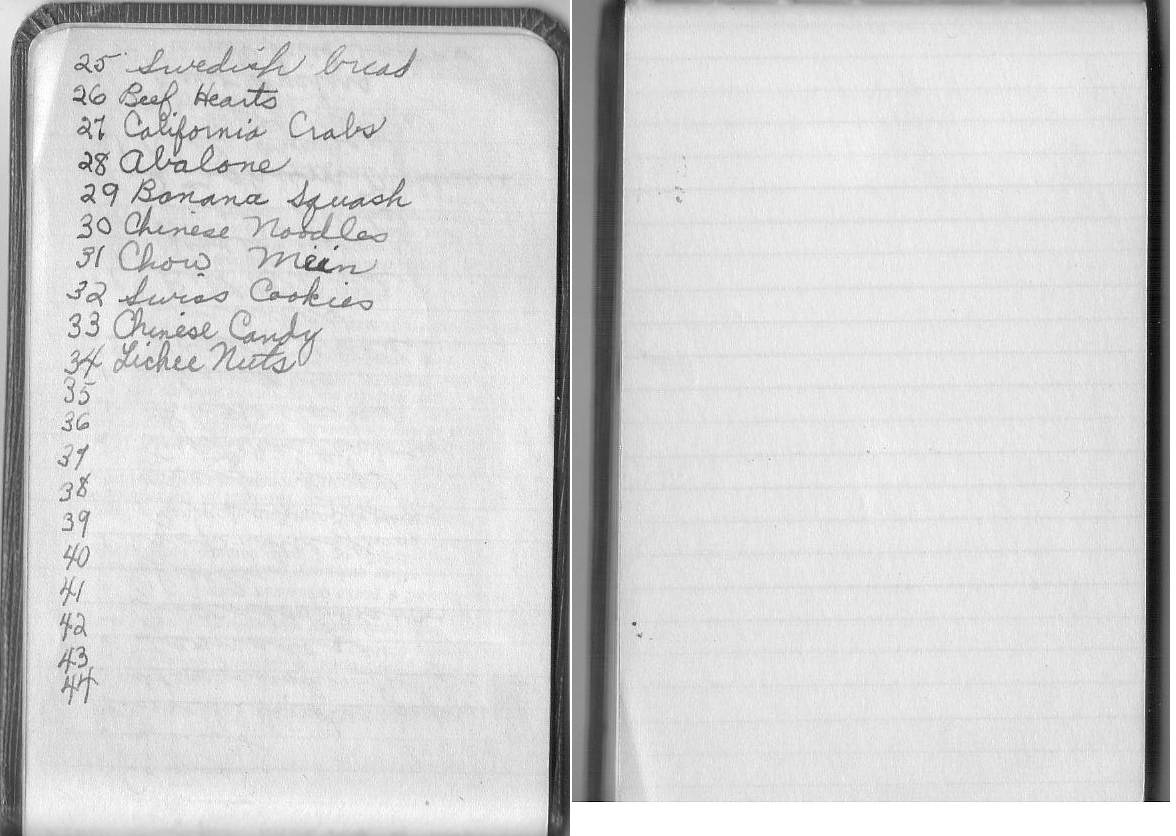 25 Swedish bread
26 Beef Hearts
27 California Crabs
28 Abalone
29 Banana Squash
30 Chinese Noodles
31 Chow Mein
32 Swiss Cookies
33 Chinese Candy
34 Lichee Nuts
35
36
37
38
39
40
41
42
43
44